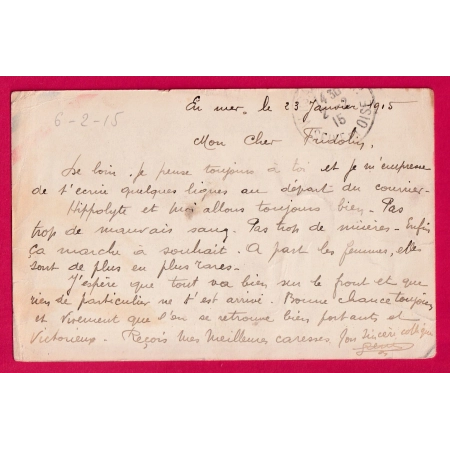 En mer, le 23 Janvier 1915
6-2-15
OISE
Mon Cher Fridolin,
De loin je pense toujours à toi et je m'empresse
de t'ecrire quelques lignes au départ du courrier-
Hippolyte et moi allons toujours bien - Pas
trop de mauvais sang - Pas trop de misères - Enfin
ça marche à souhait. A part les femmes, elles
sont de plus en plus rares -
J'espère que tout va bien sur le front et que
rien de particulier ne t'est arrivé - Bonne chance toujours
et vivement que l'on se retrouve bien portants et
victorieux - Reçois mes meilleures caresses Ton sincère collègue